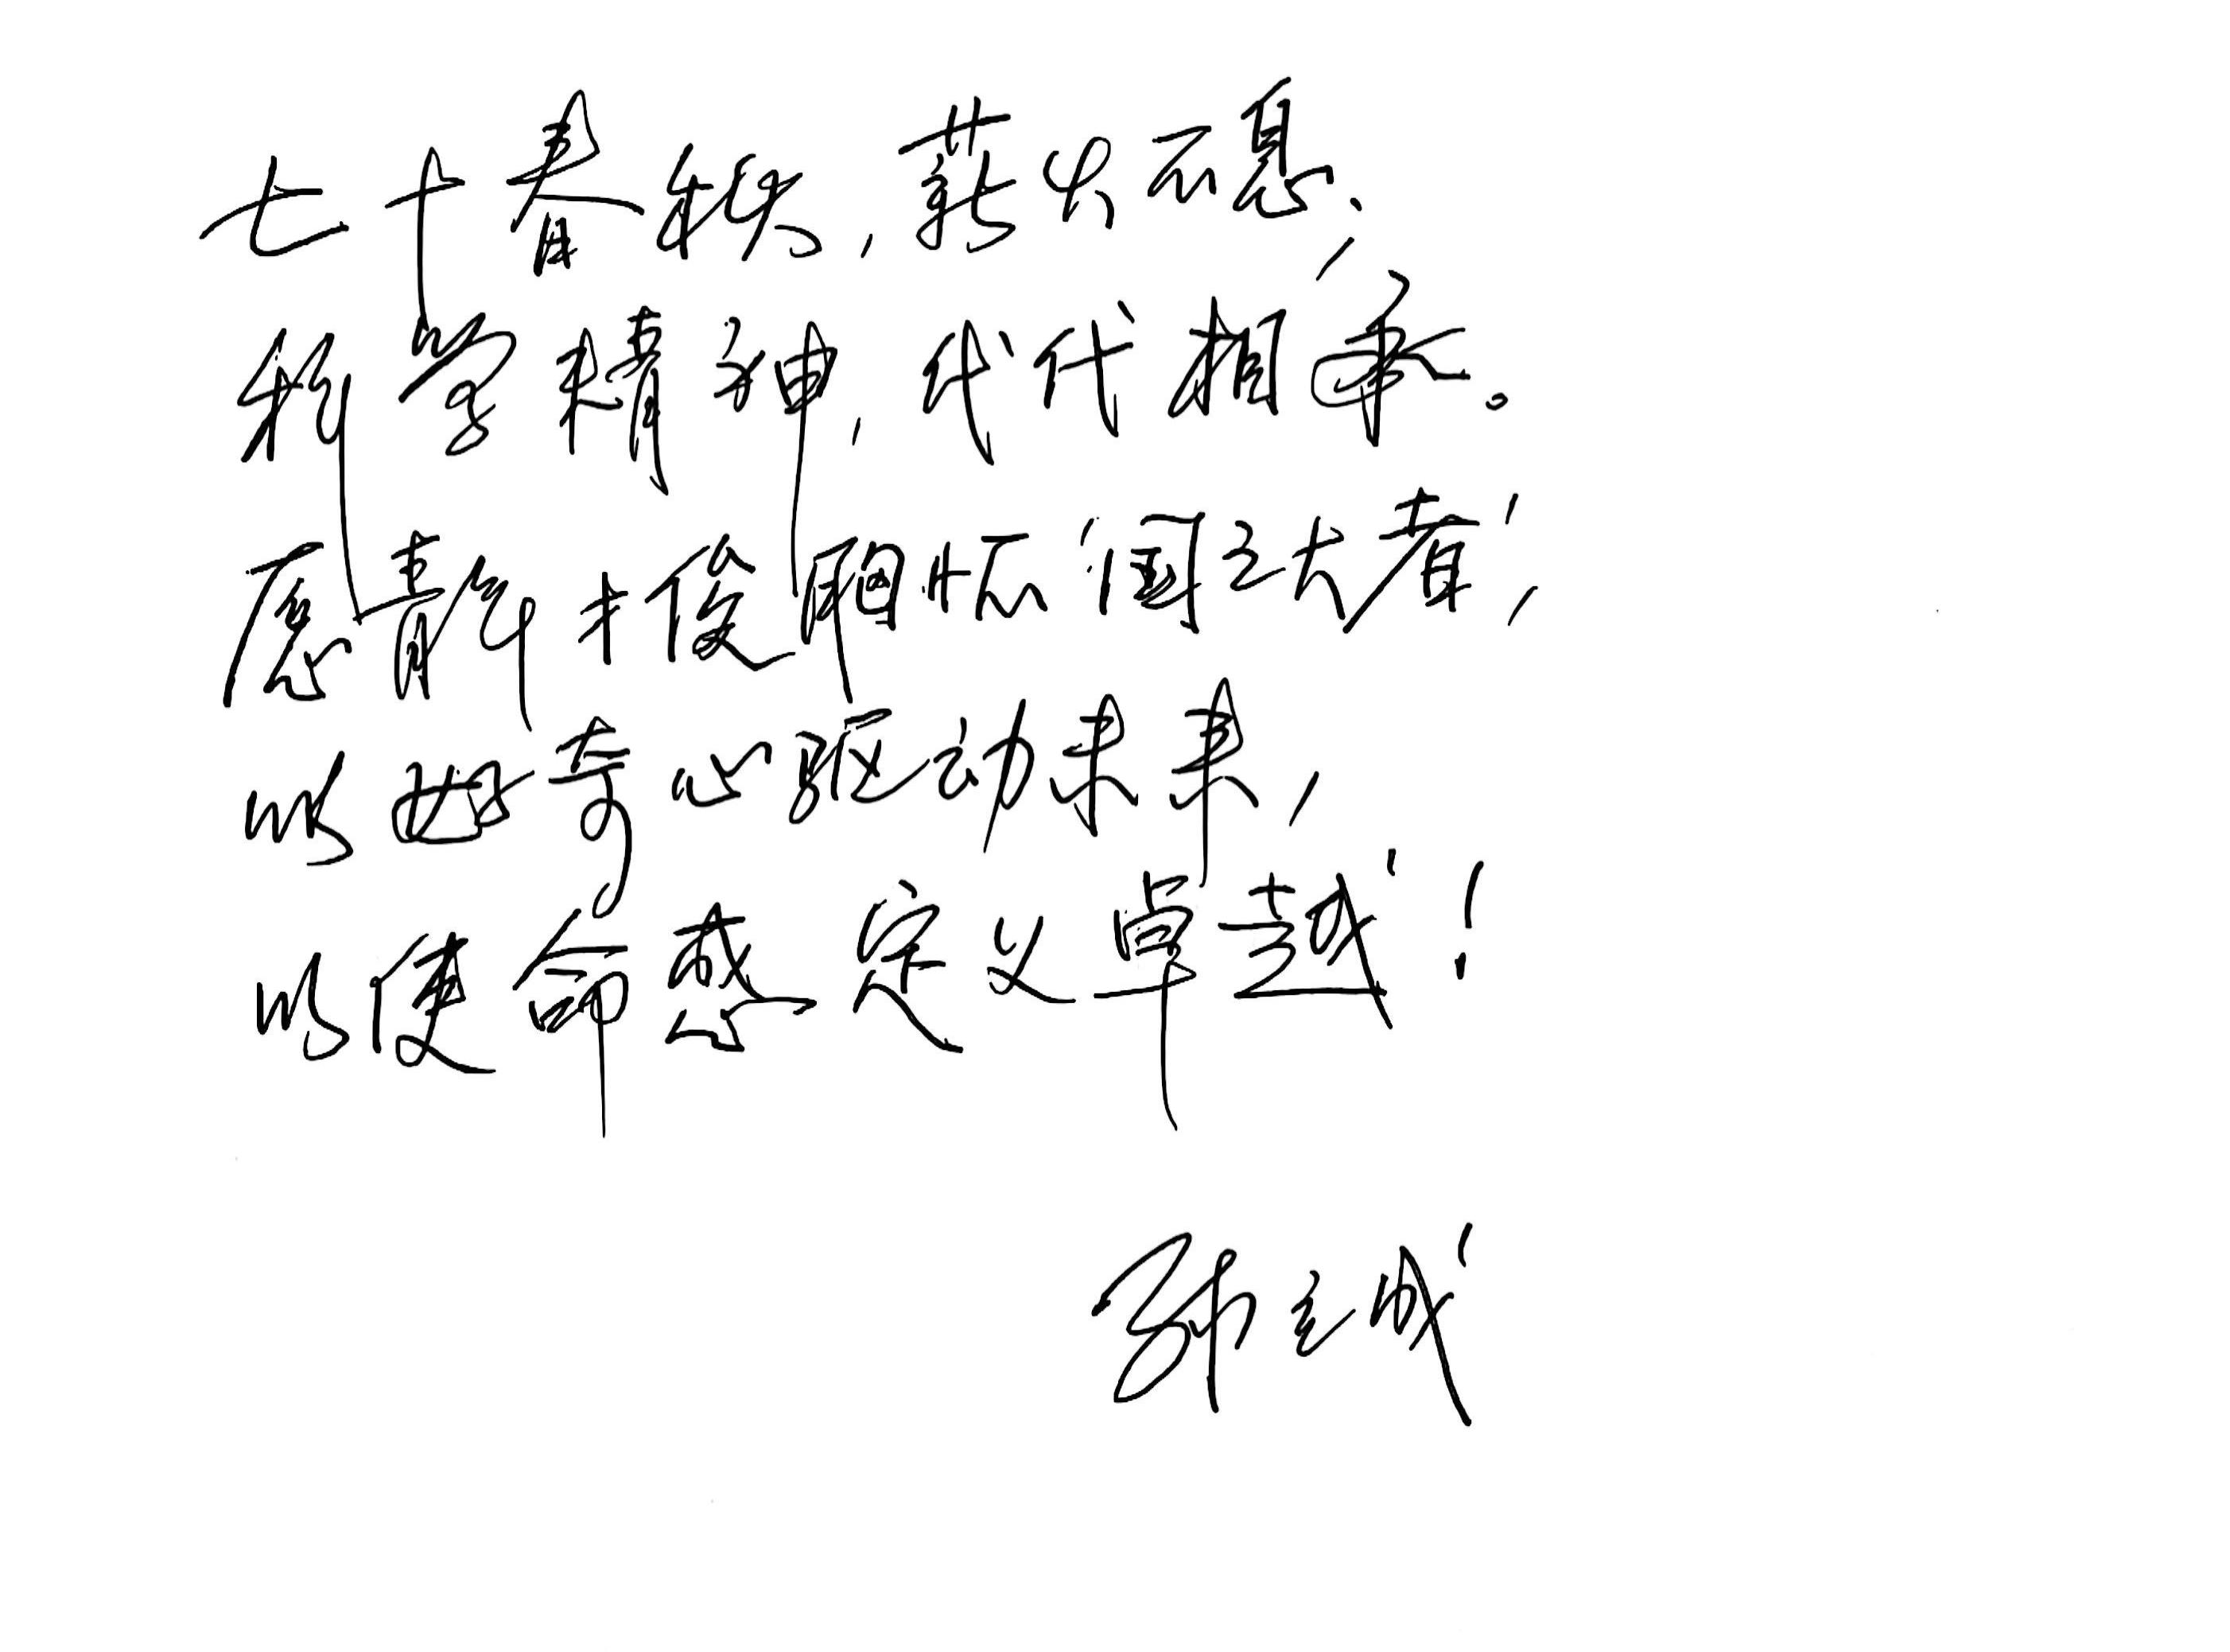 七十春秋，薪火不息，
科学精神，代代相承。
愿青年才俊胸怀“国之大者”，
以好奇心驱动未来，
以使命感定义卓越！